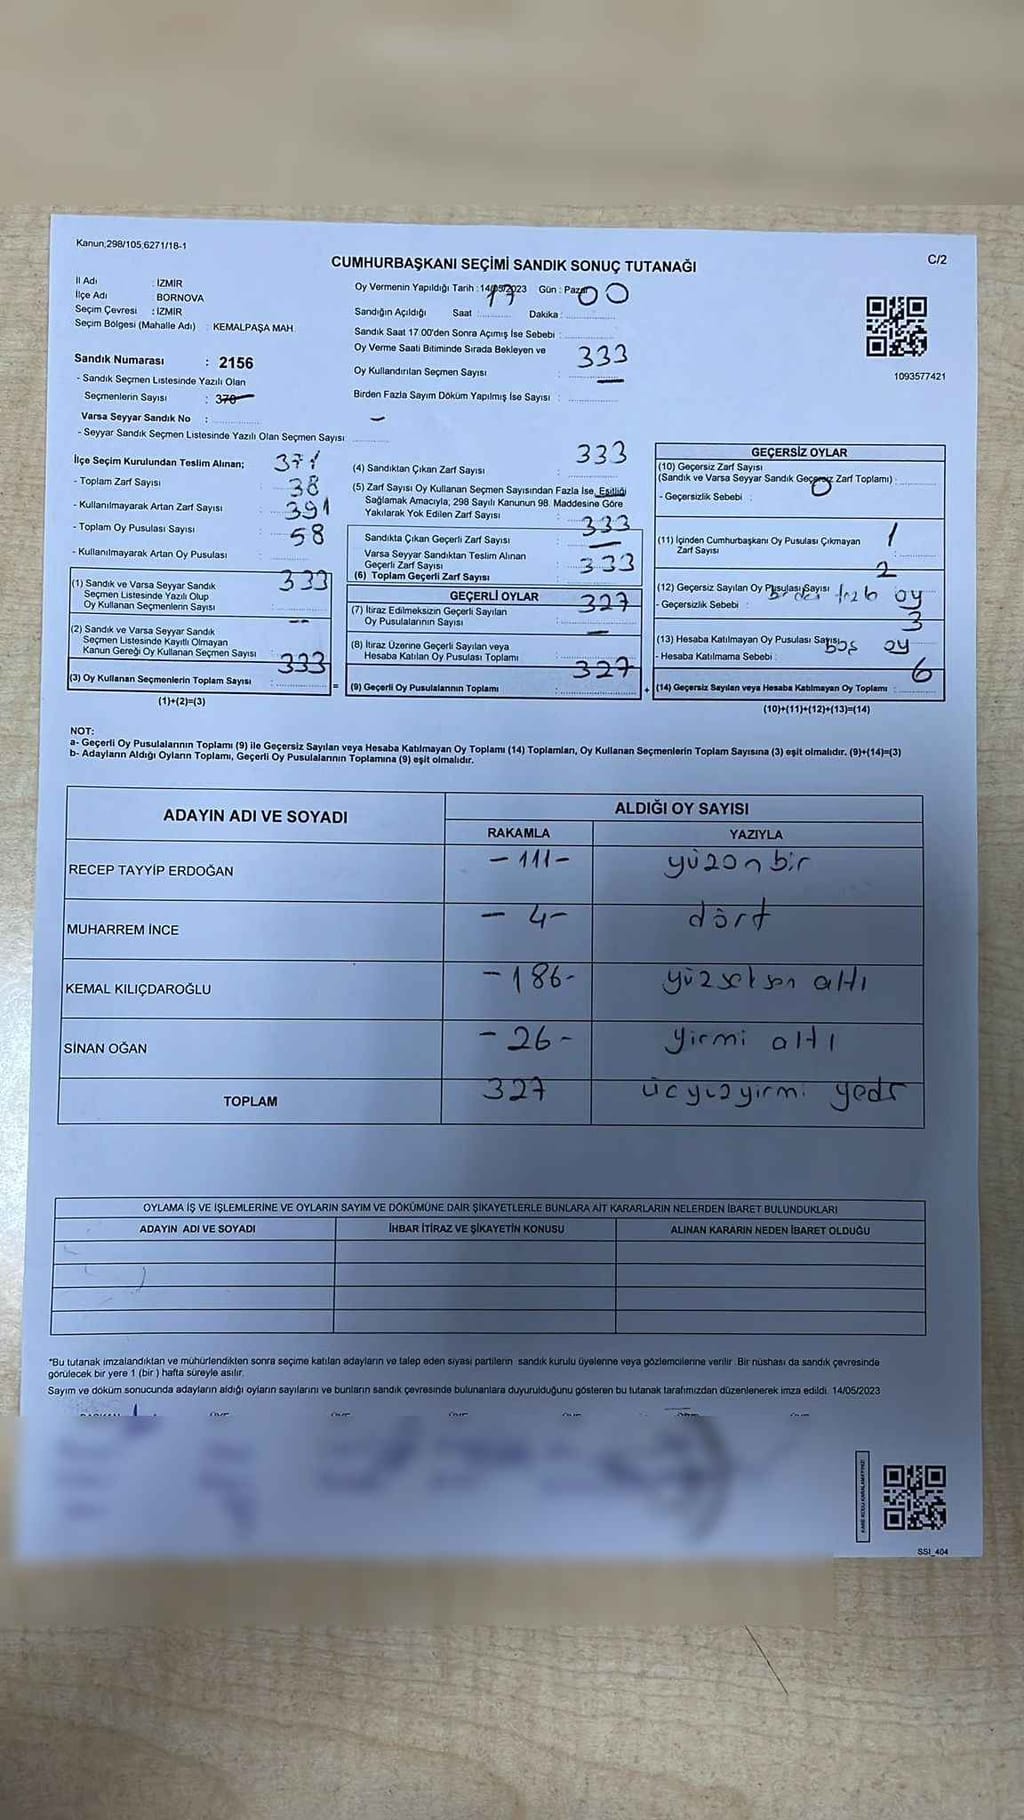 Kanun,298/105,6271/18-1
C/2
CUMHURBAŞKANI SEÇİMİ SANDIK SONUÇ TUTANAĞI
İl Adı : İZMİR
İlçe Adı BORNOVA
Seçim Çevresi : İZMİR
Seçim Bölgesi (Mahalle Adı) : KEMALPAŞA MAH.
Sandık Numarası : 2156
- Sandık Seçmen Listesinde Yazılı Olan
Seçmenlerin Sayısı : 370
Varsa Seyyar Sandık No : -
- Seyyar Sandık Seçmen Listesinde Yazılı Olan Seçmen Sayısı
Oy Vermenin Yapıldığı Tarih : 14/05/2023 Gün : Pazar
Sandığın Açıldığı Saat : 17 Dakika : 00
Sandık Saat 17.00'den Sonra Açımış İse Sebebi :
Oy Verme Saati Bitiminde Sırada Bekleyen ve
Oy Kullandırılan Seçmen Sayısı : 333
Birden Fazla Sayım Döküm Yapılmış İse Sayısı : -
1093577421
İlçe Seçim Kurulundan Teslim Alınan;
- Toplam Zarf Sayısı 371
- Kullanılmayarak Artan Zarf Sayısı 38
- Toplam Oy Pusulası Sayısı 391
- Kullanılmayarak Artan Oy Pusulası 58
(1) Sandık ve Varsa Seyyar Sandık
Seçmen Listesinde Yazılı Olup
Oy Kullanan Seçmenlerin Sayısı 333
(2) Sandık ve Varsa Seyyar Sandık
Seçmen Listesinde Kayıtlı Olmayan
Kanun Gereği Oy Kullanan Seçmen Sayısı --
(3) Oy Kullanan Seçmenlerin Toplam Sayısı : 333
(1)+(2)=(3)
=
(4) Sandıktan Çıkan Zarf Sayısı 333
(5) Zarf Sayısı Oy Kullanan Seçmen Sayısından Fazla İse, Eşitliği
Sağlamak Amacıyla; 298 Sayılı Kanunun 98. Maddesine Göre
Yakılarak Yok Edilen Zarf Sayısı : -
Sandıkta Çıkan Geçerli Zarf Sayısı : 333
Varsa Seyyar Sandıktan Teslim Alınan
Geçerli Zarf Sayısı : -
(6) Toplam Geçerli Zarf Sayısı : 333
GEÇERLİ OYLAR
(7) İtiraz Edilmeksizin Geçerli Sayılan
Oy Pusulalarının Sayısı 327
(8) İtiraz Üzerine Geçerli Sayılan veya
Hesaba Katılan Oy Pusulası Toplamı -
(9) Geçerli Oy Pusulalarının Toplamı : 327
+
GEÇERSİZ OYLAR
(10) Geçersiz Zarf Sayısı
(Sandık ve Varsa Seyyar Sandık Geçersiz Zarf Toplamı) : 0
- Geçersizlik Sebebi :
(11) İçinden Cumhurbaşkanı Oy Pusulası Çıkmayan
Zarf Sayısı 1
(12) Geçersiz Sayılan Oy Pusulası Sayısı 2
- Geçersizlik Sebebi : oy
(13) Hesaba Katılmayan Oy Pusulası Sayısı 3
- Hesaba Katılmama Sebebi : boş oy
(14) Geçersiz Sayılan veya Hesaba Katılmayan Oy Toplamı : 6
(10)+(11)+(12)+(13)=(14)
NOT:
a- Geçerli Oy Pusulalarının Toplamı (9) ile Geçersiz Sayılan veya Hesaba Katılmayan Oy Toplamı (14) Toplamları, Oy Kullanan Seçmenlerin Toplam Sayısına (3) eşit olmalıdır. (9)+(14)=(3)
b- Adayların Aldığı Oyların Toplamı, Geçerli Oy Pusulalarının Toplamına (9) eşit olmalıdır.
ADAYIN ADI VE SOYADI ALDIĞI OY SAYISI
RAKAMLA YAZIYLA
RECEP TAYYİP ERDOĞAN - 111 - yüzon bir
MUHARREM İNCE - 4 - dört
KEMAL KILIÇDAROĞLU - 186 - yüzseksen altı
SİNAN OĞAN - 26 - yirmi altı
TOPLAM 327 üçyüzyirmi yedi
OYLAMA İŞ VE İŞLEMLERİNE VE OYLARIN SAYIM VE DÖKÜMÜNE DAİR ŞİKAYETLERLE BUNLARA AİT KARARLARIN NELERDEN İBARET BULUNDUKLARI
ADAYIN ADI VE SOYADI İHBAR İTİRAZ VE ŞİKAYETİN KONUSU ALINAN KARARIN NEDEN İBARET OLDUĞU
*Bu tutanak imzalandıktan ve mühürlendikten sonra seçime katılan adayların ve talep eden siyasi partilerin sandık kurulu üyelerine veya gözlemcilerine verilir. Bir nüshası da sandık çevresinde
görülecek bir yere 1 (bir) hafta süreyle asılır.
Sayım ve döküm sonucunda adayların aldığı oyların sayılarını ve bunların sandık çevresinde bulunanlara duyurulduğunu gösteren bu tutanak tarafımızdan düzenlenerek imza edildi. 14/05/2023
SSI_404